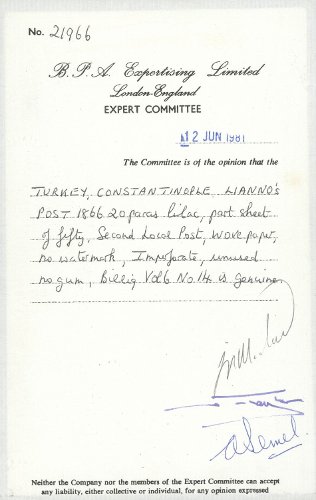 No. 21966
B.P.A. Expertising Limited
London-England
EXPERT COMMITTEE
12 JUN 1981
The Committee is of the opinion that the
TURKEY, CONSTANTINOPLE LIANNO's
POST 1866 20 paras lilac, part sheet
of fifty, Second Local Post, wove paper,
no watermark, Imperforate, unused
no gum, Billig Vol 6 No 14 is genuine
Neither the Company nor the members of the Expert Committee can accept
any liability, either collective or individual, for any opinion expressed